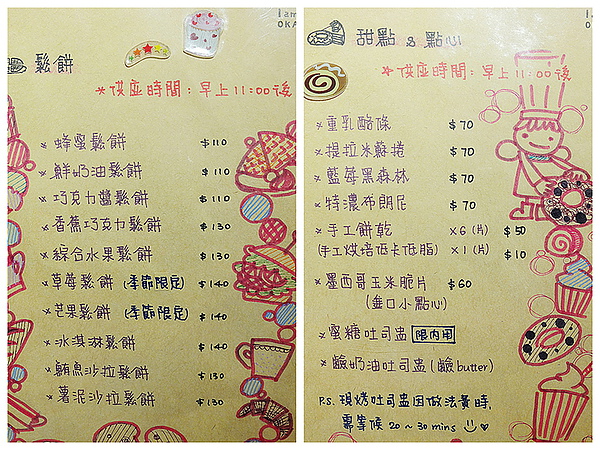 I am
OKA
鬆餅
*供應時間:早上11:00後
*蜂蜜鬆餅 $110
*鮮奶油鬆餅 $110
*巧克力醬鬆餅 $110
*香蕉巧克力鬆餅 $130
*綜合水果鬆餅 $130
*草莓鬆餅 (季節限定) $140
*芒果鬆餅 (季節限定) $140
*冰淇淋鬆餅 $140
*鮪魚沙拉鬆餅 $130
*薯泥沙拉鬆餅 $130
OKA
甜點 & 點心
*供應時間:早上11:00後
*重乳酪條 $70
*提拉米蘇捲 $70
*藍莓黑森林 $70
*特濃布朗尼 $70
*手工餅乾 x6 (片) $50
(手工烘培低卡低脂) x1 (片) $10
*墨西哥玉米脆片 $60
(鹹口小點心)
*蜜糖吐司盅 限內用
*鹼奶油吐司盅 (鹼butter)
P.S. 現烤吐司盅因做法費時,
需等候 20~30 mins